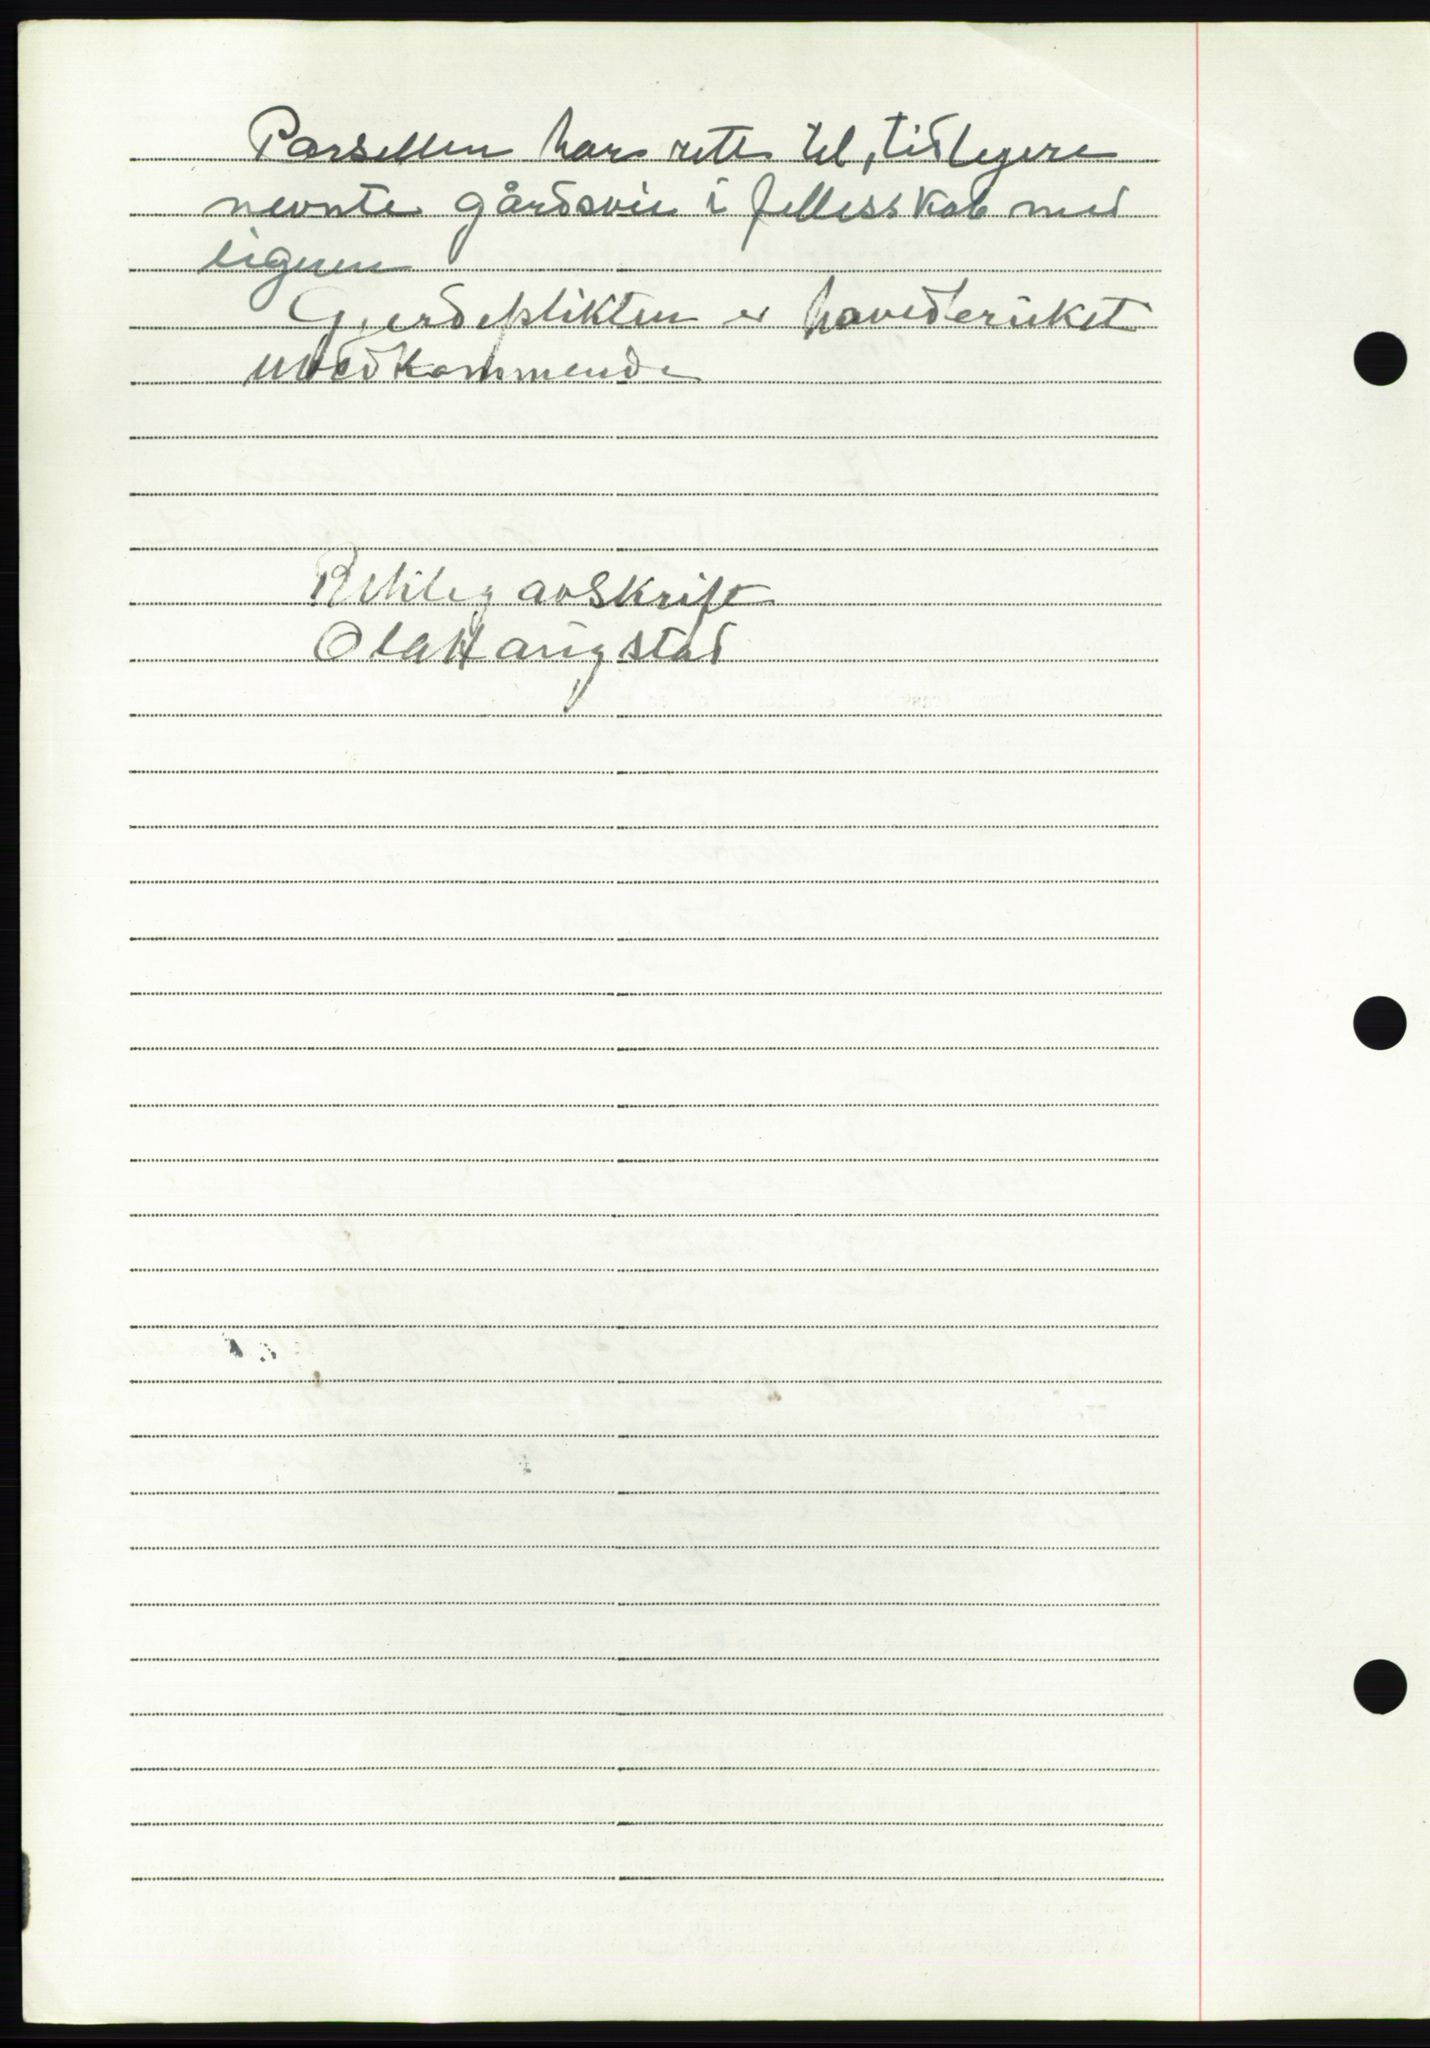 Parsellen har rett til, tidligere
nevnte gårdsvei i fellesskab med
eigeren
Gjerdeplikten er hovedbruket
uvedkommende
Rettileg avskrift
Ola Haugstad